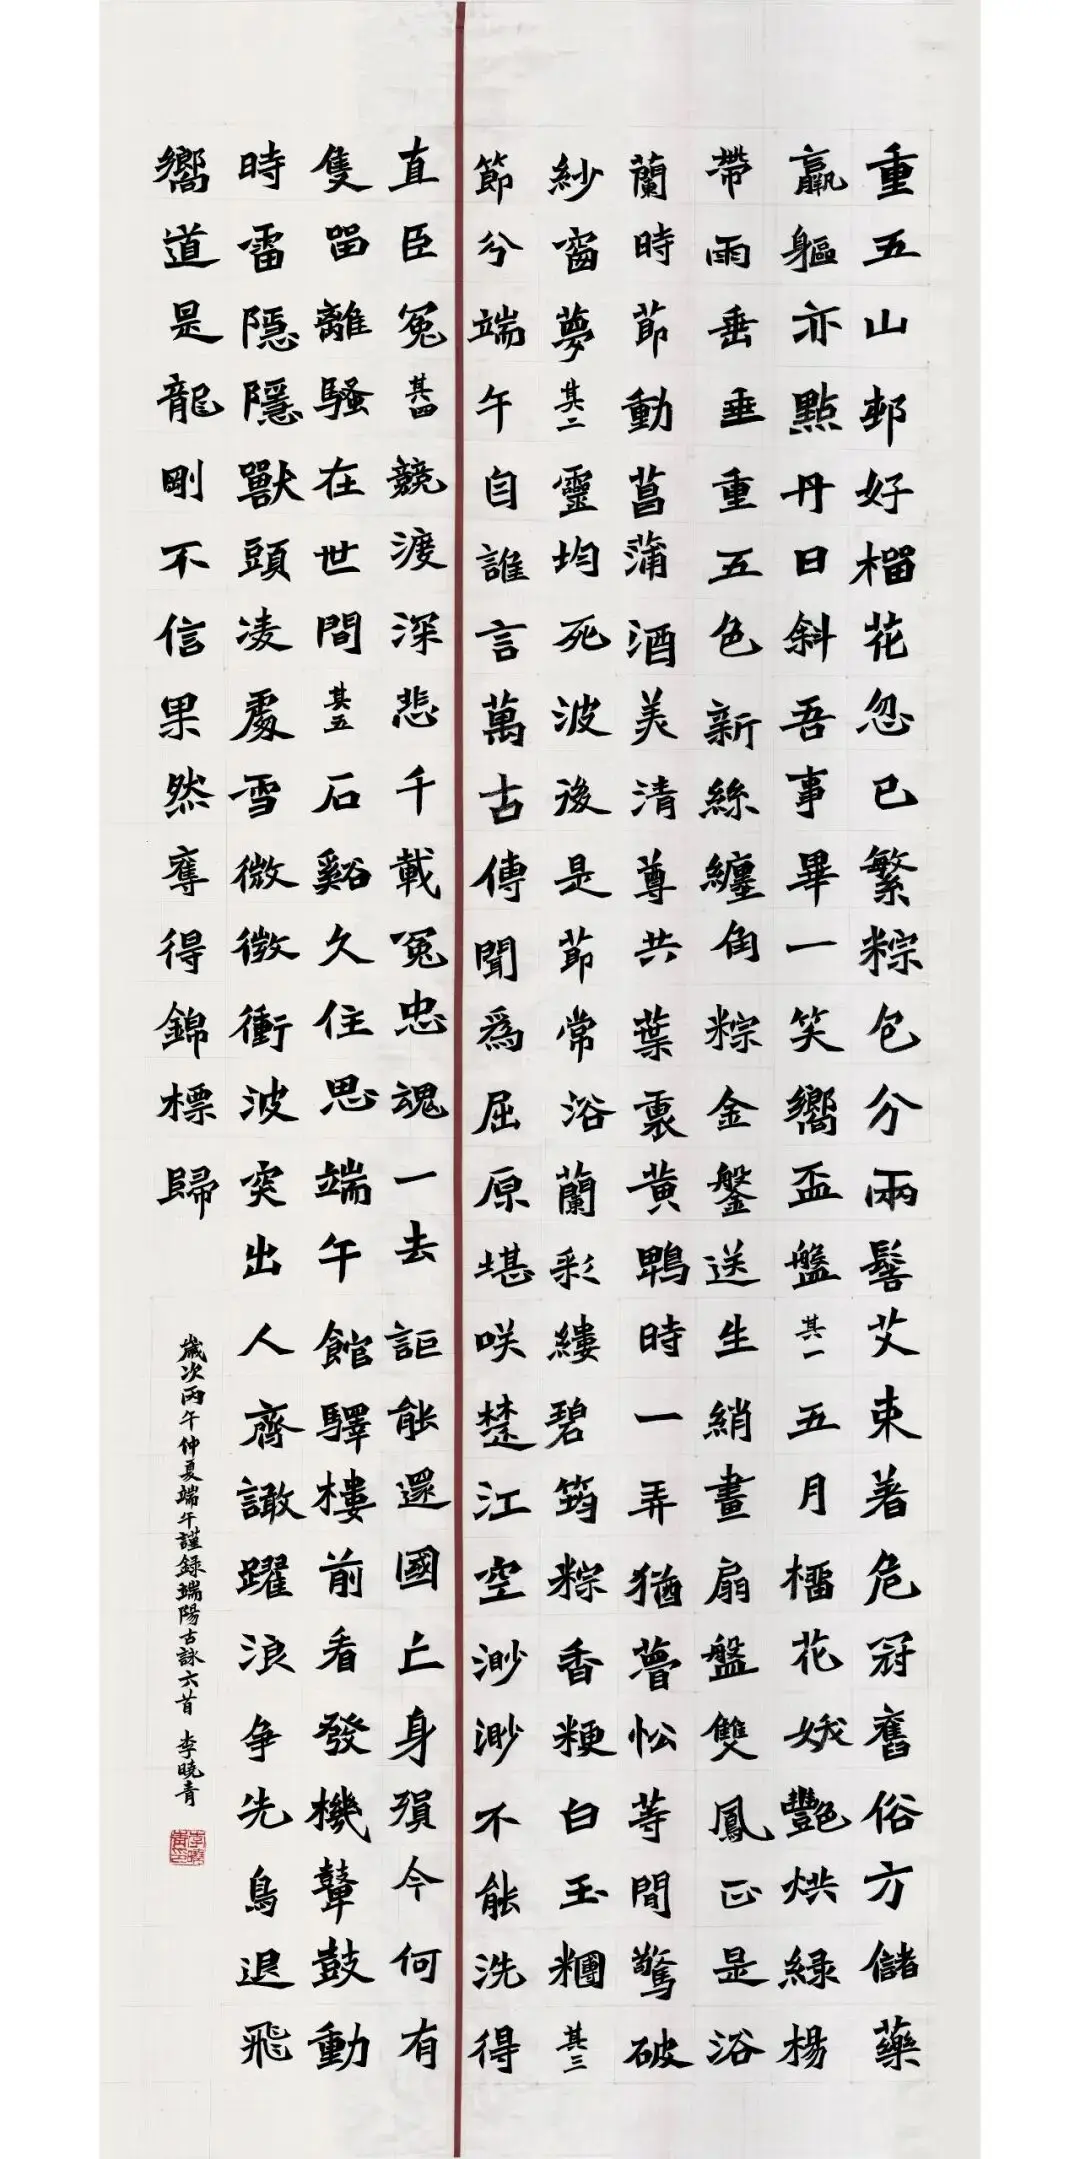 重五山邨好榴花忽已繁粽包分兩髻艾束著危冠舊俗方儲藥
羸軀亦點丹日斜吾事畢一笑嚮盃盤其一五月榴花妖艷烘綠楊
帶雨垂垂重五色新絲纏角粽金盤送生綃畫扇盤雙鳳正是浴
蘭時節動菖蒲酒美清尊共葉裏黃鸝時一弄猶瞢忪等閒驚破
紗窗夢其二靈均死波後是節常浴蘭彩縷碧筠粽香粳白玉糰其三
節兮端午自誰言萬古傳聞爲屈原堪咲楚江空渺渺不能洗得
直臣冤其四競渡深悲千載冤忠魂一去詎能還國亡身殞今何有
隻留離騷在世間其五石谿久住思端午館驛樓前看發機鼙鼓動
時雷隱隱獸頭凌處雪微微衝波突出人齊譀躍浪爭先鳥退飛
嚮道是龍剛不信果然奪得錦標歸
歲次丙午仲夏端午謹錄端陽古詠六首 李曉青